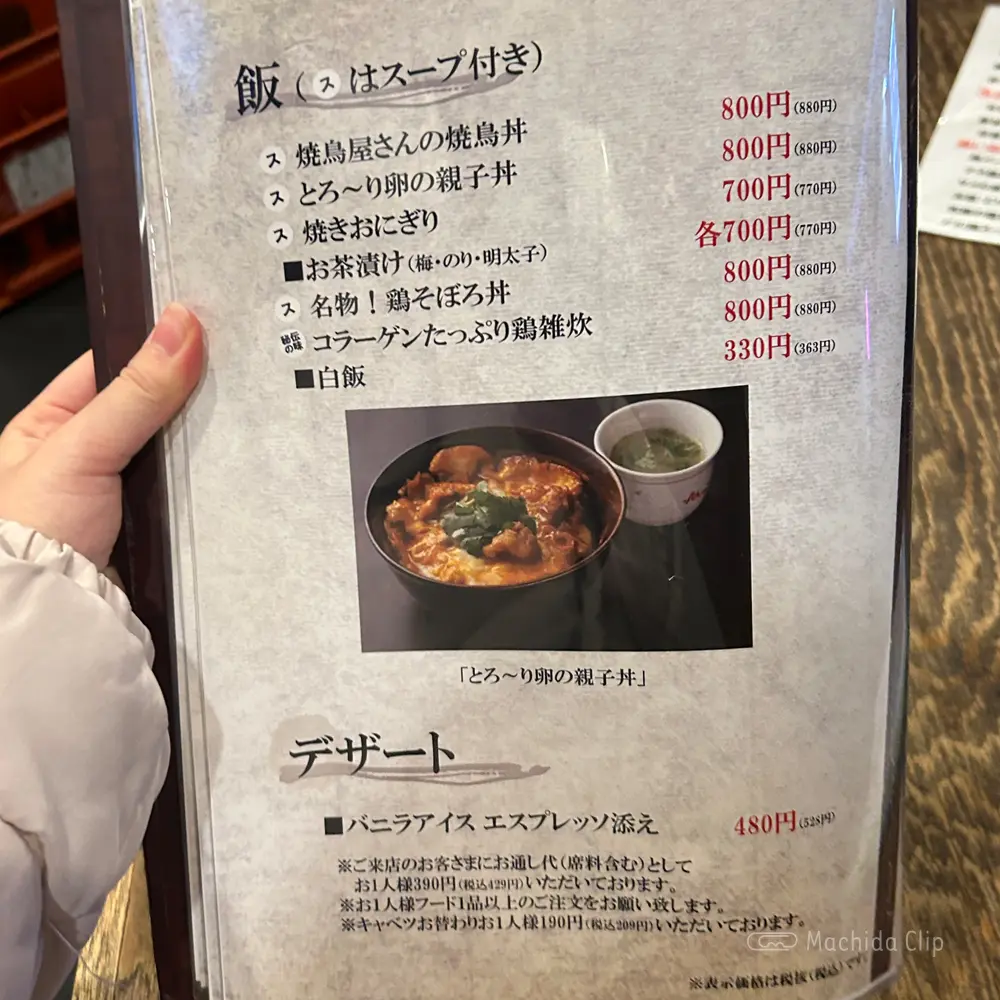 飯(スはスープ付き)
ス 焼鳥屋さんの焼鳥丼 800円(880円)
ス とろ〜り卵の親子丼 800円(880円)
ス 焼きおにぎり 700円(770円)
■お茶漬け(梅・のり・明太子) 各700円(770円)
ス 名物!鶏そぼろ丼 800円(880円)
秘伝の味 コラーゲンたっぷり鶏雑炊 800円(880円)
■白飯 330円(363円)
「とろ〜り卵の親子丼」
デザート
■バニラアイス エスプレッソ添え 480円(528円)
※ご来店のお客さまにお通し代(席料含む)として
お1人様390円(税込429円)いただいております。
※お1人様フード1品以上のご注文をお願い致します。
※キャベツお替わりお1人様190円(税込209円)いただいております。
※表示価格は税抜(税込)です
Machida Clip